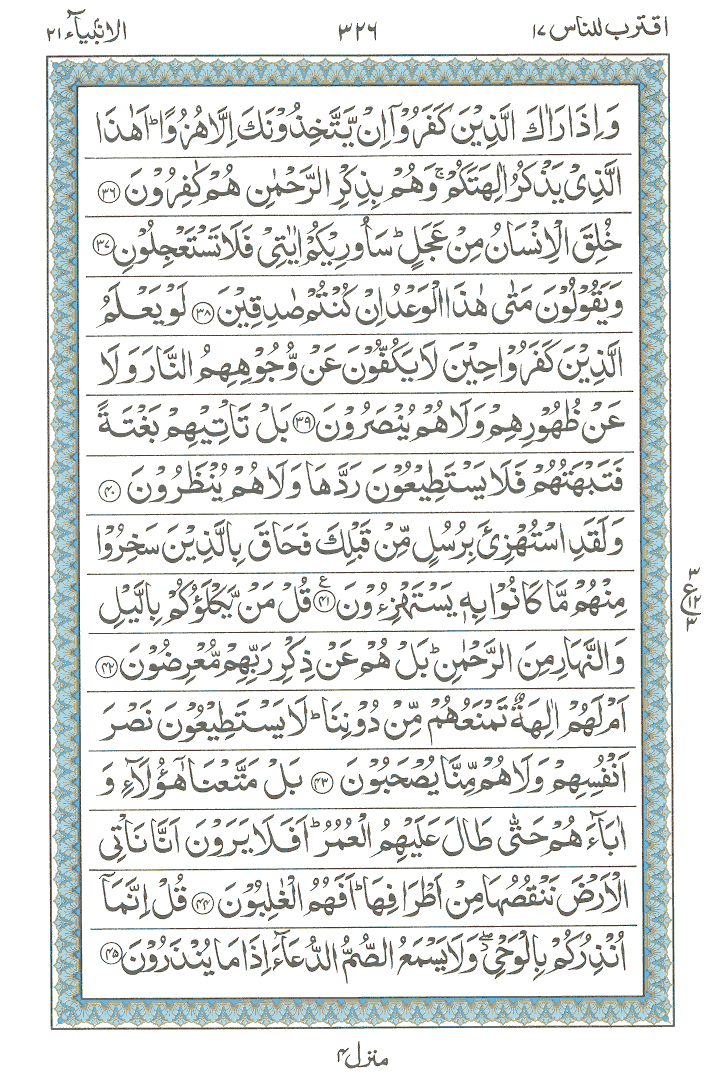 اقترب للناس ۱۷
۳۲۶
الانبیآء ۲۱
وَاِذَا رَاٰكَ الَّذِیْنَ كَفَرُوْۤا اِنْ یَّتَّخِذُوْنَكَ اِلَّا هُزُوًا ؕ اَهٰذَا
الَّذِیْ یَذْكُرُ اٰلِهَتَكُمْ ۚ وَهُمْ بِذِكْرِ الرَّحْمٰنِ هُمْ كٰفِرُوْنَ ﴿۳۶﴾
خُلِقَ الْاِنْسَانُ مِنْ عَجَلٍ ؕ سَاُورِیْكُمْ اٰیٰتِیْ فَلَا تَسْتَعْجِلُوْنِ ﴿۳۷﴾
وَیَقُوْلُوْنَ مَتٰی هٰذَا الْوَعْدُ اِنْ كُنْتُمْ صٰدِقِیْنَ ﴿۳۸﴾ لَوْ یَعْلَمُ
الَّذِیْنَ كَفَرُوْا حِیْنَ لَا یَكُفُّوْنَ عَنْ وُّجُوْهِهِمُ النَّارَ وَلَا
عَنْ ظُهُوْرِهِمْ وَلَا هُمْ یُنْصَرُوْنَ ﴿۳۹﴾ بَلْ تَاْتِیْهِمْ بَغْتَةً
فَتَبْهَتُهُمْ فَلَا یَسْتَطِیْعُوْنَ رَدَّهَا وَلَا هُمْ یُنْظَرُوْنَ ﴿۴۰﴾
وَلَقَدِ اسْتُهْزِئَ بِرُسُلٍ مِّنْ قَبْلِكَ فَحَاقَ بِالَّذِیْنَ سَخِرُوْا
مِنْهُمْ مَّا كَانُوْا بِهٖ یَسْتَهْزِءُوْنَ ﴿۴۱﴾ ع قُلْ مَنْ یَّكْلَؤُكُمْ بِالَّیْلِ
۳ ع ۱۲ ۳
وَالنَّهَارِ مِنَ الرَّحْمٰنِ ؕ بَلْ هُمْ عَنْ ذِكْرِ رَبِّهِمْ مُّعْرِضُوْنَ ﴿۴۲﴾
اَمْ لَهُمْ اٰلِهَةٌ تَمْنَعُهُمْ مِّنْ دُوْنِنَا ؕ لَا یَسْتَطِیْعُوْنَ نَصْرَ
اَنْفُسِهِمْ وَلَا هُمْ مِّنَّا یُصْحَبُوْنَ ﴿۴۳﴾ بَلْ مَتَّعْنَا هٰۤؤُلَآءِ وَ
اٰبَآءَهُمْ حَتّٰی طَالَ عَلَیْهِمُ الْعُمُرُ ؕ اَفَلَا یَرَوْنَ اَنَّا نَاْتِی
الْاَرْضَ نَنْقُصُهَا مِنْ اَطْرَافِهَا ؕ اَفَهُمُ الْغٰلِبُوْنَ ﴿۴۴﴾ قُلْ اِنَّمَاۤ
اُنْذِرُكُمْ بِالْوَحْیِ ۖ وَلَا یَسْمَعُ الصُّمُّ الدُّعَآءَ اِذَا مَا یُنْذَرُوْنَ ﴿۴۵﴾
منزل ۴